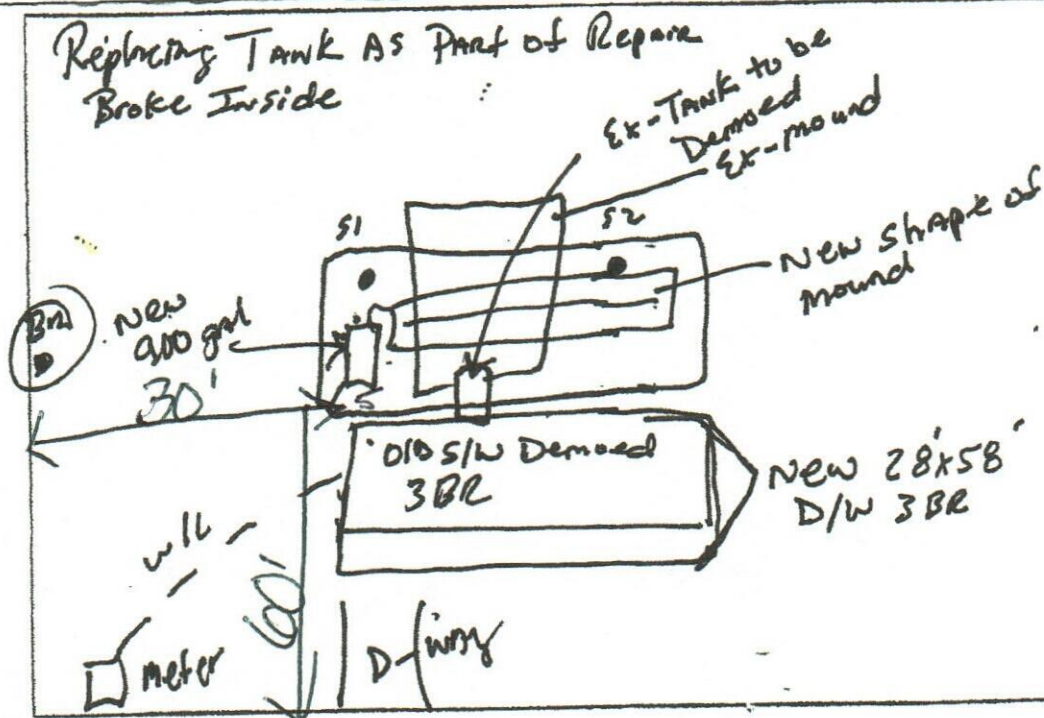 Replacing Tank As Part of Repair
Broke Inside
Ex-Tank to be
Demoed
Ex-mound
S1
S2
New shape of
mound
BM
New
900 gal
30'
S
Old S/W Demoed
3BR
New 28'x58'
D/W 3BR
w/L
60'
Meter
D-way